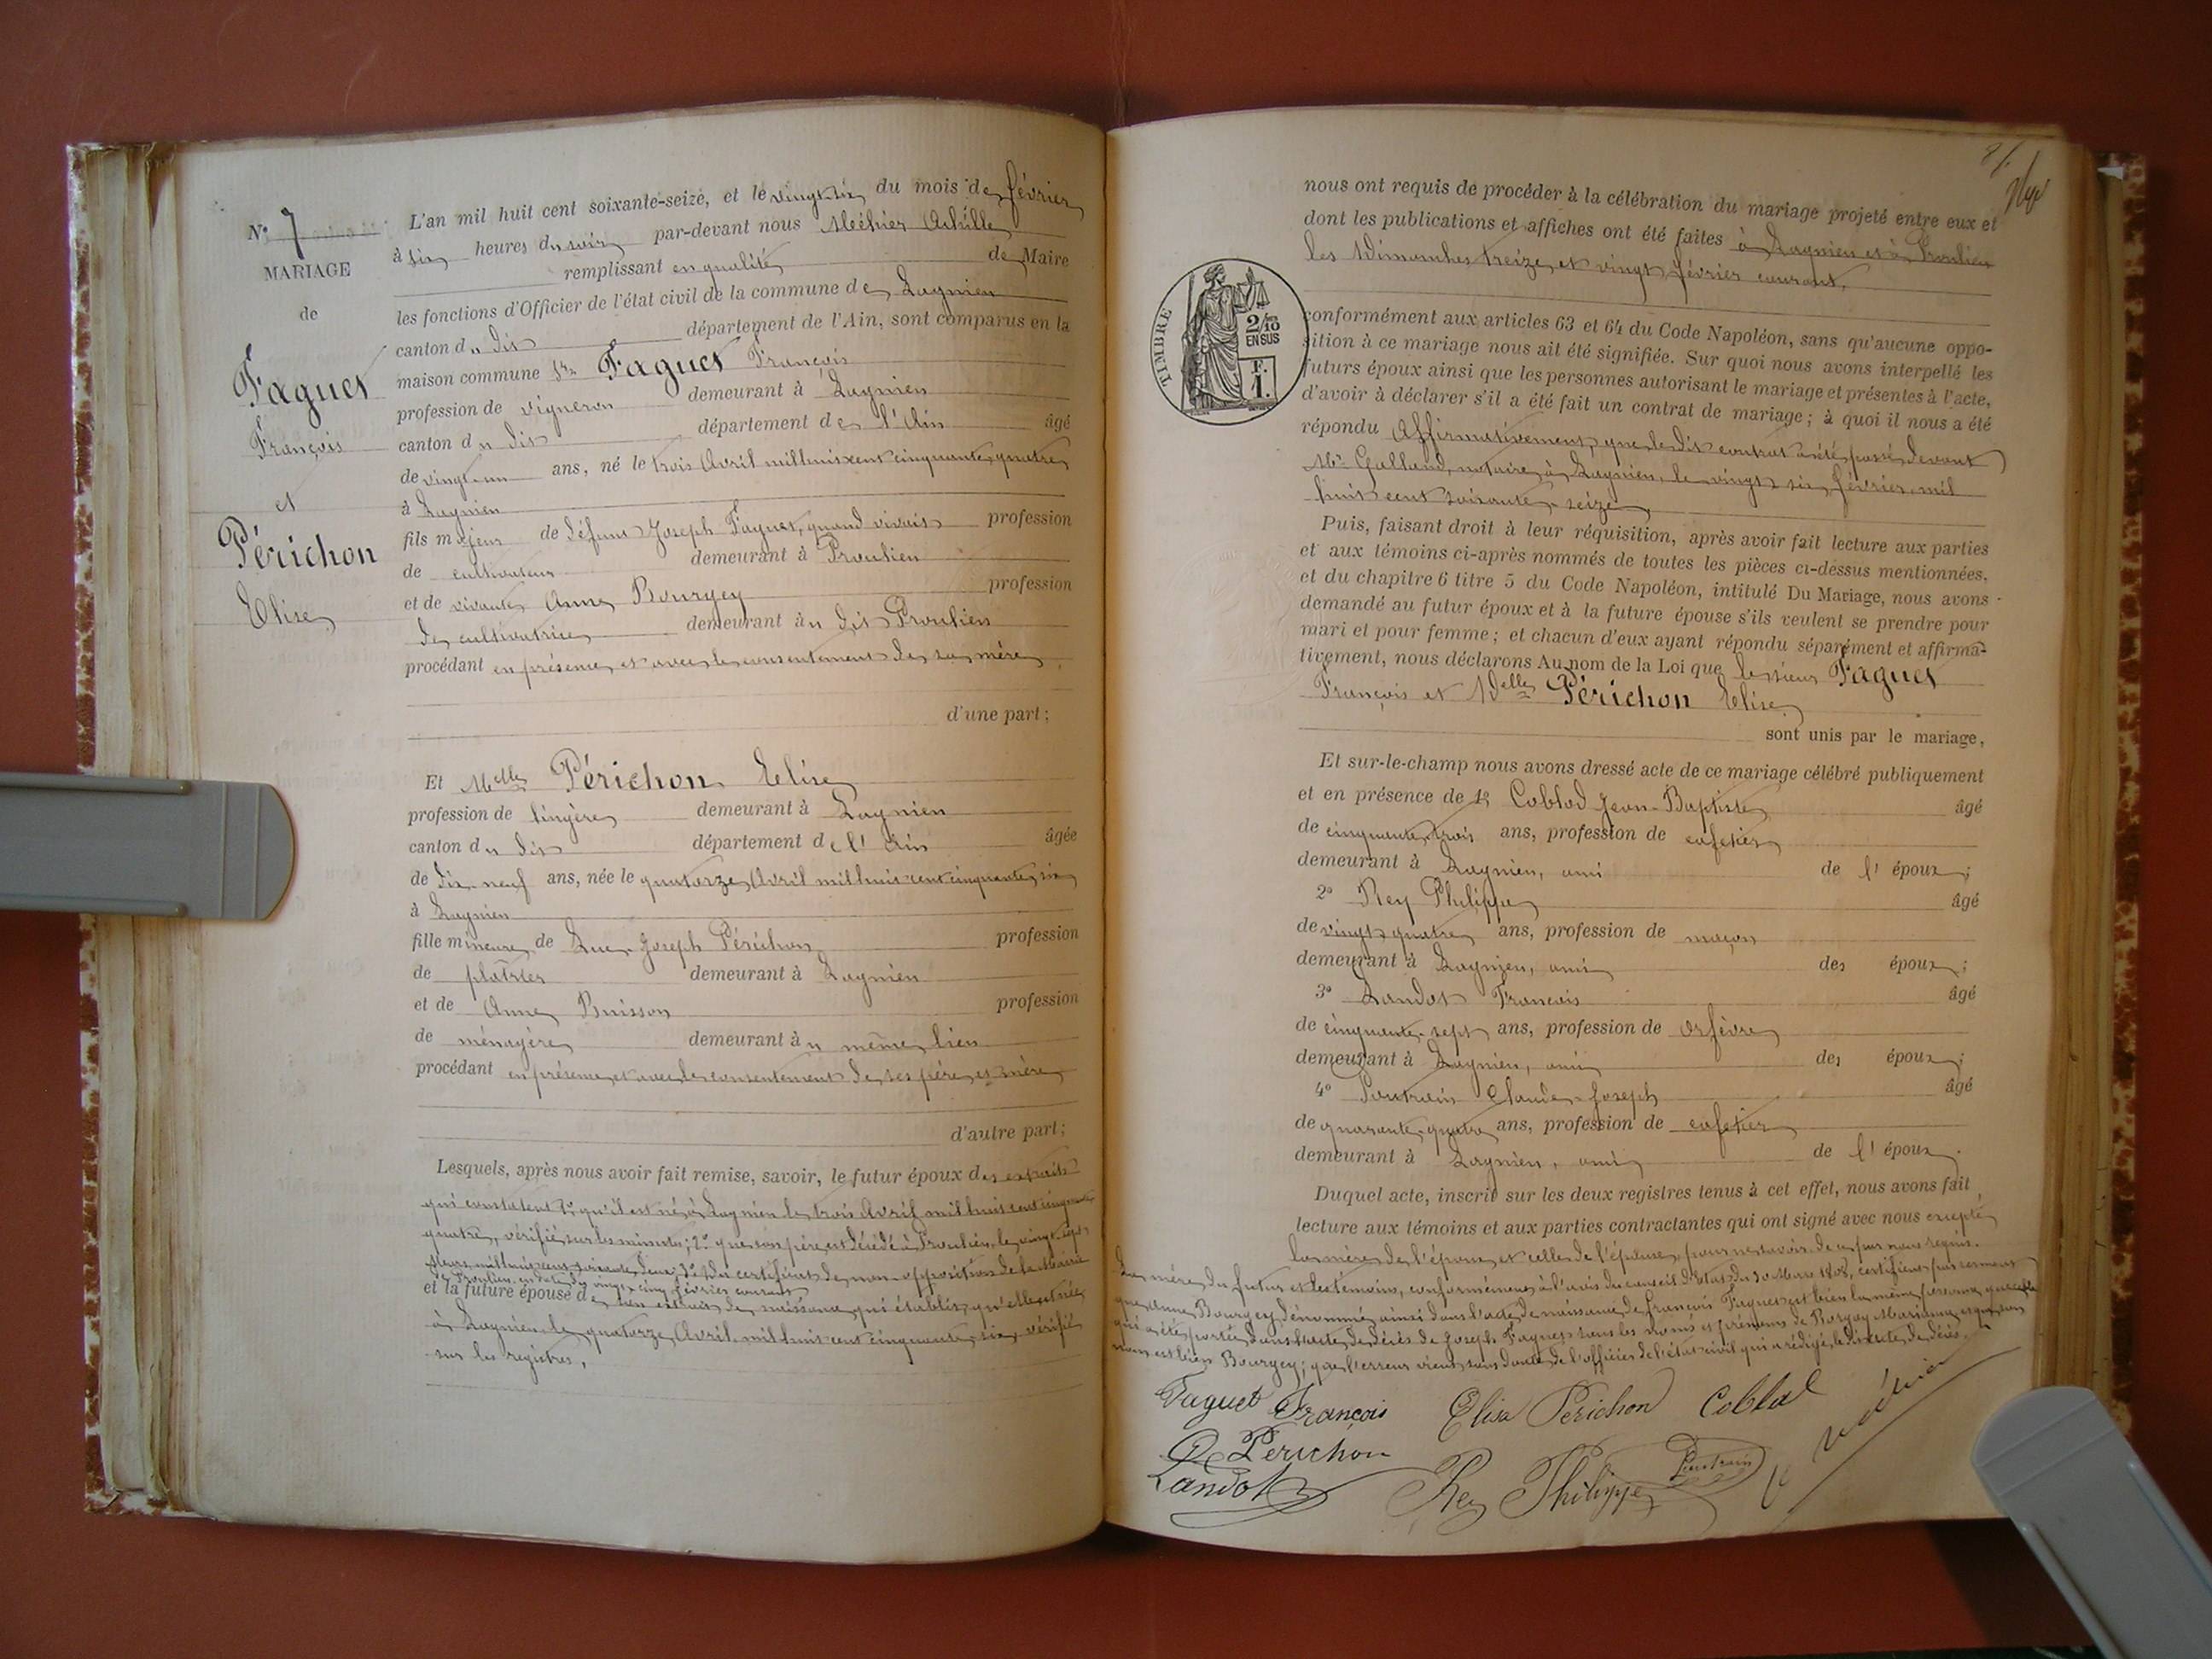 N° 7
MARIAGE
de
Faguet
François
et
Périchon
Elise
L'an mil huit cent soixante-seize, et le vingt-six du mois de février
à six heures du soir par-devant nous Méhier Achille
remplissant en qualité de Maire
les fonctions d'Officier de l'état civil de la commune de Lagnieu
canton du dit département de l'Ain, sont comparus en la
maison commune Sr. Faguet François
profession de vigneron demeurant à Lagnieu
canton du dit département de l'Ain âgé
de vingt-un ans, né le trois Avril mil huit cent cinquante quatre
à Lagnieu
fils majeur de défunt Joseph Faguet, quand vivait profession
de cultivateur demeurant à Proulieu
et de vivante Anne Bourgey profession
de cultivatrice demeurant au dit Proulieu
procédant en présence et avec le consentement de sa mère
d'une part;
Et Melle Périchon Elise
profession de lingère demeurant à Lagnieu
canton du dit département de l'Ain âgée
de dix-neuf ans, née le quatorze Avril mil huit cent cinquante six
à Lagnieu
fille mineure de Luc-Joseph Périchon profession
de plâtrier demeurant à Lagnieu
et de Anne Buisson profession
de ménagère demeurant au même lieu
procédant en présence et avec le consentement de ses père et mère
d'autre part;
Lesquels, après nous avoir fait remise, savoir, le futur époux des extraits
qui constatent 1° qu'il est né à Lagnieu le trois Avril mil huit cent cinquante
quatre, vérifié sur les minutes; 2° que son père est décédé à Proulieu, le vingt-sept
mil huit cent soixante deux; 3° du certificat de non-opposition de la Mairie
de Proulieu, en date du vingt-cinq février courant
et la future épouse de son extrait de naissance qui établit qu'elle est née
à Lagnieu le quatorze Avril mil huit cent cinquante six, vérifié
sur les registres,
8
nous ont requis de procéder à la célébration du mariage projeté entre eux et
dont les publications et affiches ont été faites à Lagnieu et à Proulieu
les Dimanches treize et vingt février courant,
TIMBRE
2/10
EN SUS
F.
1.
conformément aux articles 63 et 64 du Code Napoléon, sans qu'aucune oppo-
sition à ce mariage nous ait été signifiée. Sur quoi nous avons interpellé les
futurs époux ainsi que les personnes autorisant le mariage et présentes à l'acte,
d'avoir à déclarer s'il a été fait un contrat de mariage; à quoi il nous a été
répondu Affirmativement, que le dit contrat a été passé devant
Me. Galland, notaire à Lagnieu, le vingt six février mil
huit cent soixante seize
Puis, faisant droit à leur réquisition, après avoir fait lecture aux parties
et aux témoins ci-après nommés de toutes les pièces ci-dessus mentionnées,
et du chapitre 6 titre 5 du Code Napoléon, intitulé Du Mariage, nous avons
demandé au futur époux et à la future épouse s'ils veulent se prendre pour
mari et pour femme; et chacun d'eux ayant répondu séparément et affirma-
tivement, nous déclarons Au nom de la Loi que le sieur Faguet
François et Delle Périchon Elise
sont unis par le mariage,
Et sur-le-champ nous avons dressé acte de ce mariage célébré publiquement
et en présence de 1° Coblod Jean-Baptiste âgé
de cinquante-trois ans, profession de cafetier
demeurant à Lagnieu, ami de l'époux;
2° Rey Philippe âgé
de vingt-quatre ans, profession de maçon
demeurant à Lagnieu, ami des époux;
3° Landot François âgé
de cinquante-sept ans, profession de orfèvre
demeurant à Lagnieu, ami des époux;
4° Poutrain Claude-Joseph âgé
de quarante-quatre ans, profession de cafetier
demeurant à Lagnieu, ami de l'époux.
Duquel acte, inscrit sur les deux registres tenus à cet effet, nous avons fait
lecture aux témoins et aux parties contractantes qui ont signé avec nous excepté
la mère de l'époux et celle de l'épouse, pour ne savoir de ce par nous requis.
La mère du futur et les témoins, conformément à l'avis du conseil d'état du 30 Mars 1808, certifient par serment
que Anne Bourgey dénommée ainsi dans l'acte de naissance de François Faguet est bien la même personne que celle
qui a été portée dans l'acte de décès de Joseph Faguet sous les noms et prénoms de Borgay Marianne et que son
nom est bien Bourgey; que l'erreur vient sans doute de l'officier de l'état civil qui a rédigé le dit acte de décès.
Faguet François Elise Perichon Coblod
Perichon
Landot Rey Philippe Poutrain